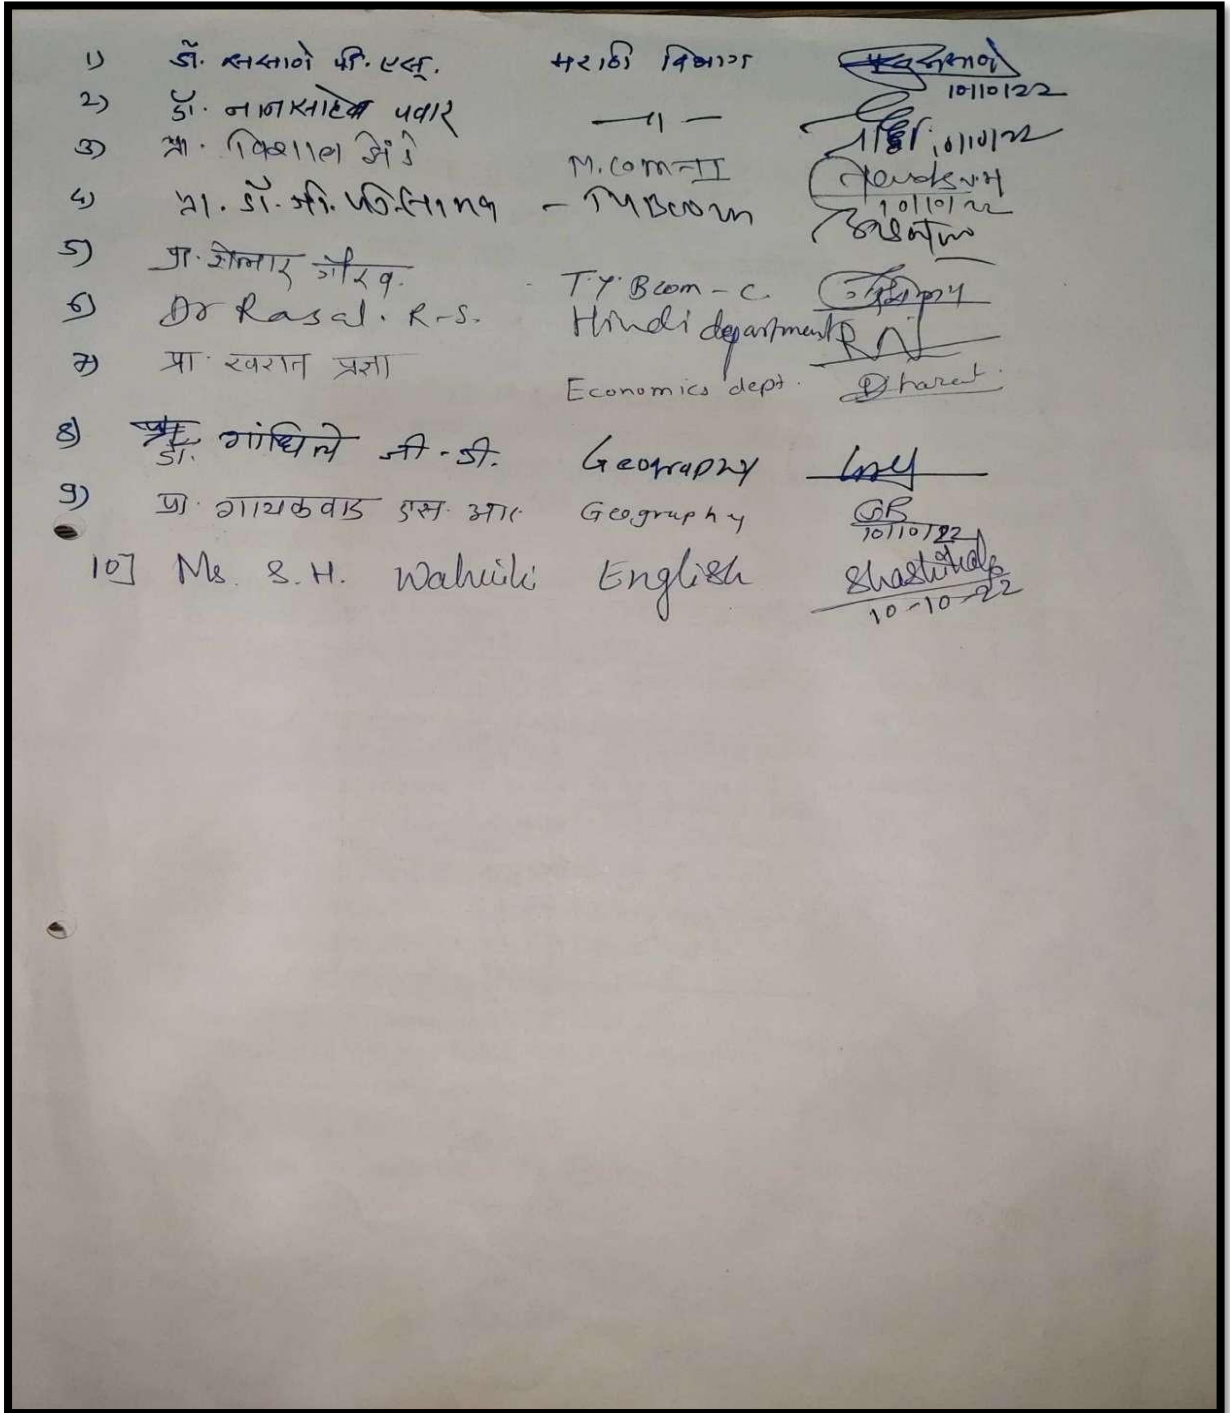 1) डॉ. ससाणे पी. एस. मराठी विभाग ससाणे
10/10/22
2) डॉ. नानासाहेब पवार —〃—
10/10/22
3) प्रा. विशाल M.Com-II
10/10/22
4) प्रा. डॉ. - TYBcom
5) प्रा. शेलार गौरव. T.Y.Bcom - C.
6) Dr Rasal. R.S. Hindi department
7) प्रा. खरात प्रज्ञा Economics dept. Kharat
8) डॉ. गांधिले जी. डी. Geography
9) प्रा. गायकवाड एस. आर. Geography GR
10/10/22
10] Ms. S. H. English
10-10-22